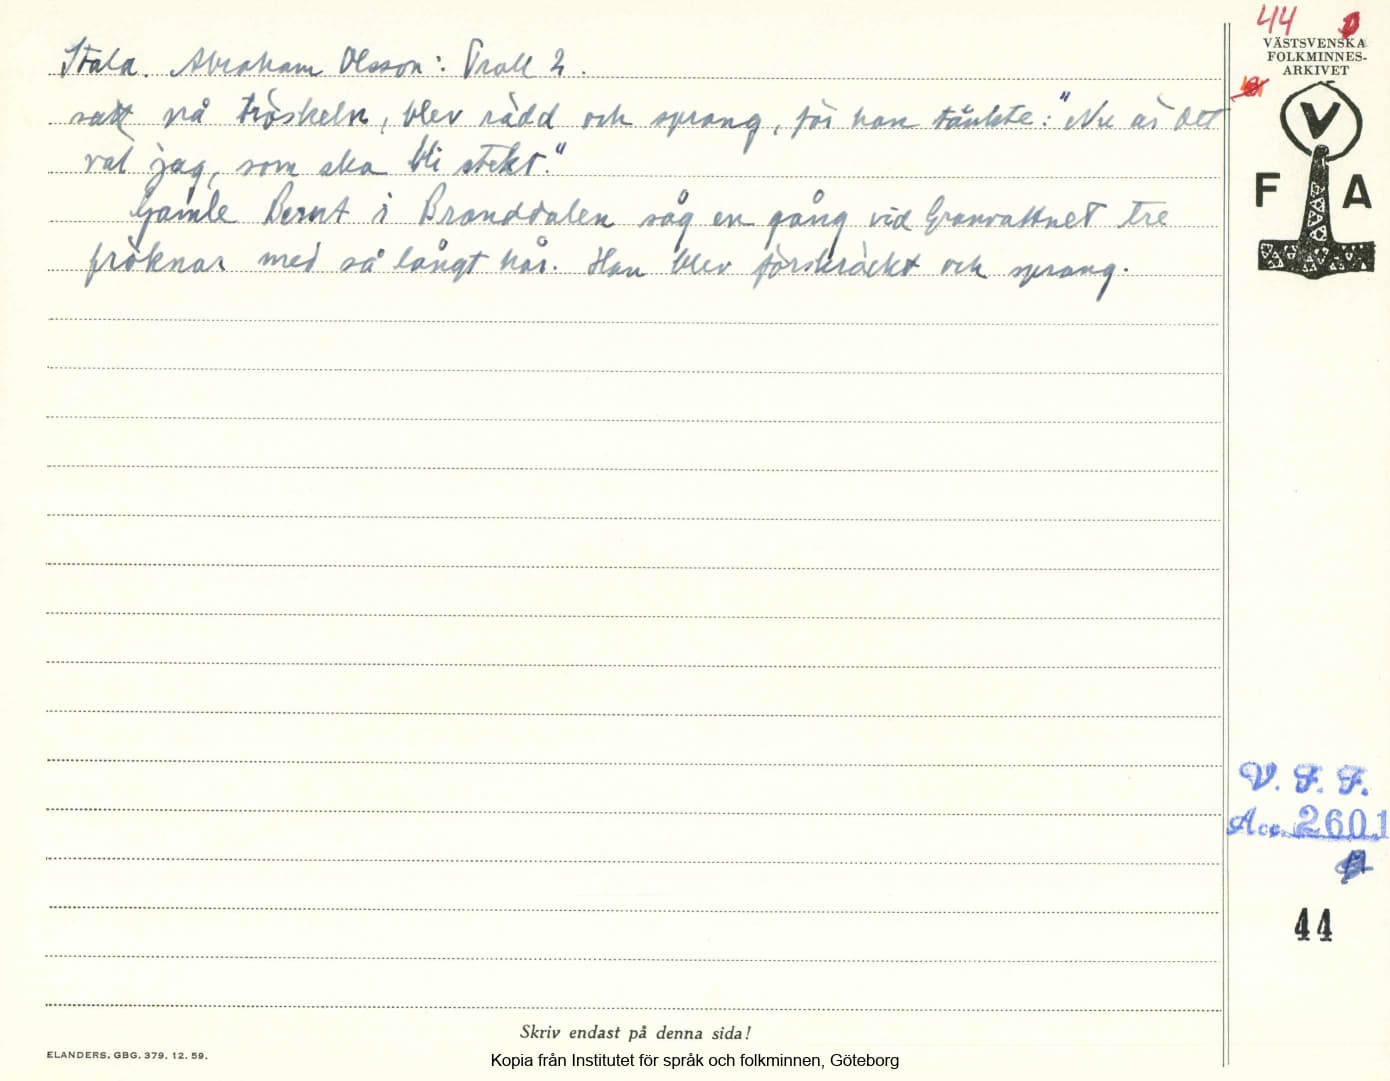 44
VÄSTSVENSKA
FOLKMINNES-
ARKIVET
V
F A
Stala. Abraham Olsson: Troll 2.
satt på tröskeln, blev rädd och sprang, för han tänkte: "Nu är det
väl jag, som ska bli stekt."
Gamle Bernt i Branddalen såg en gång vid Granvattnet tre
fröknar med så långt hår. Han blev förskräckt och sprang.
V. F. F.
Acc. 2601
44
Skriv endast på denna sida!
ELANDERS, GBG. 379. 12. 59.
Kopia från Institutet för språk och folkminnen, Göteborg